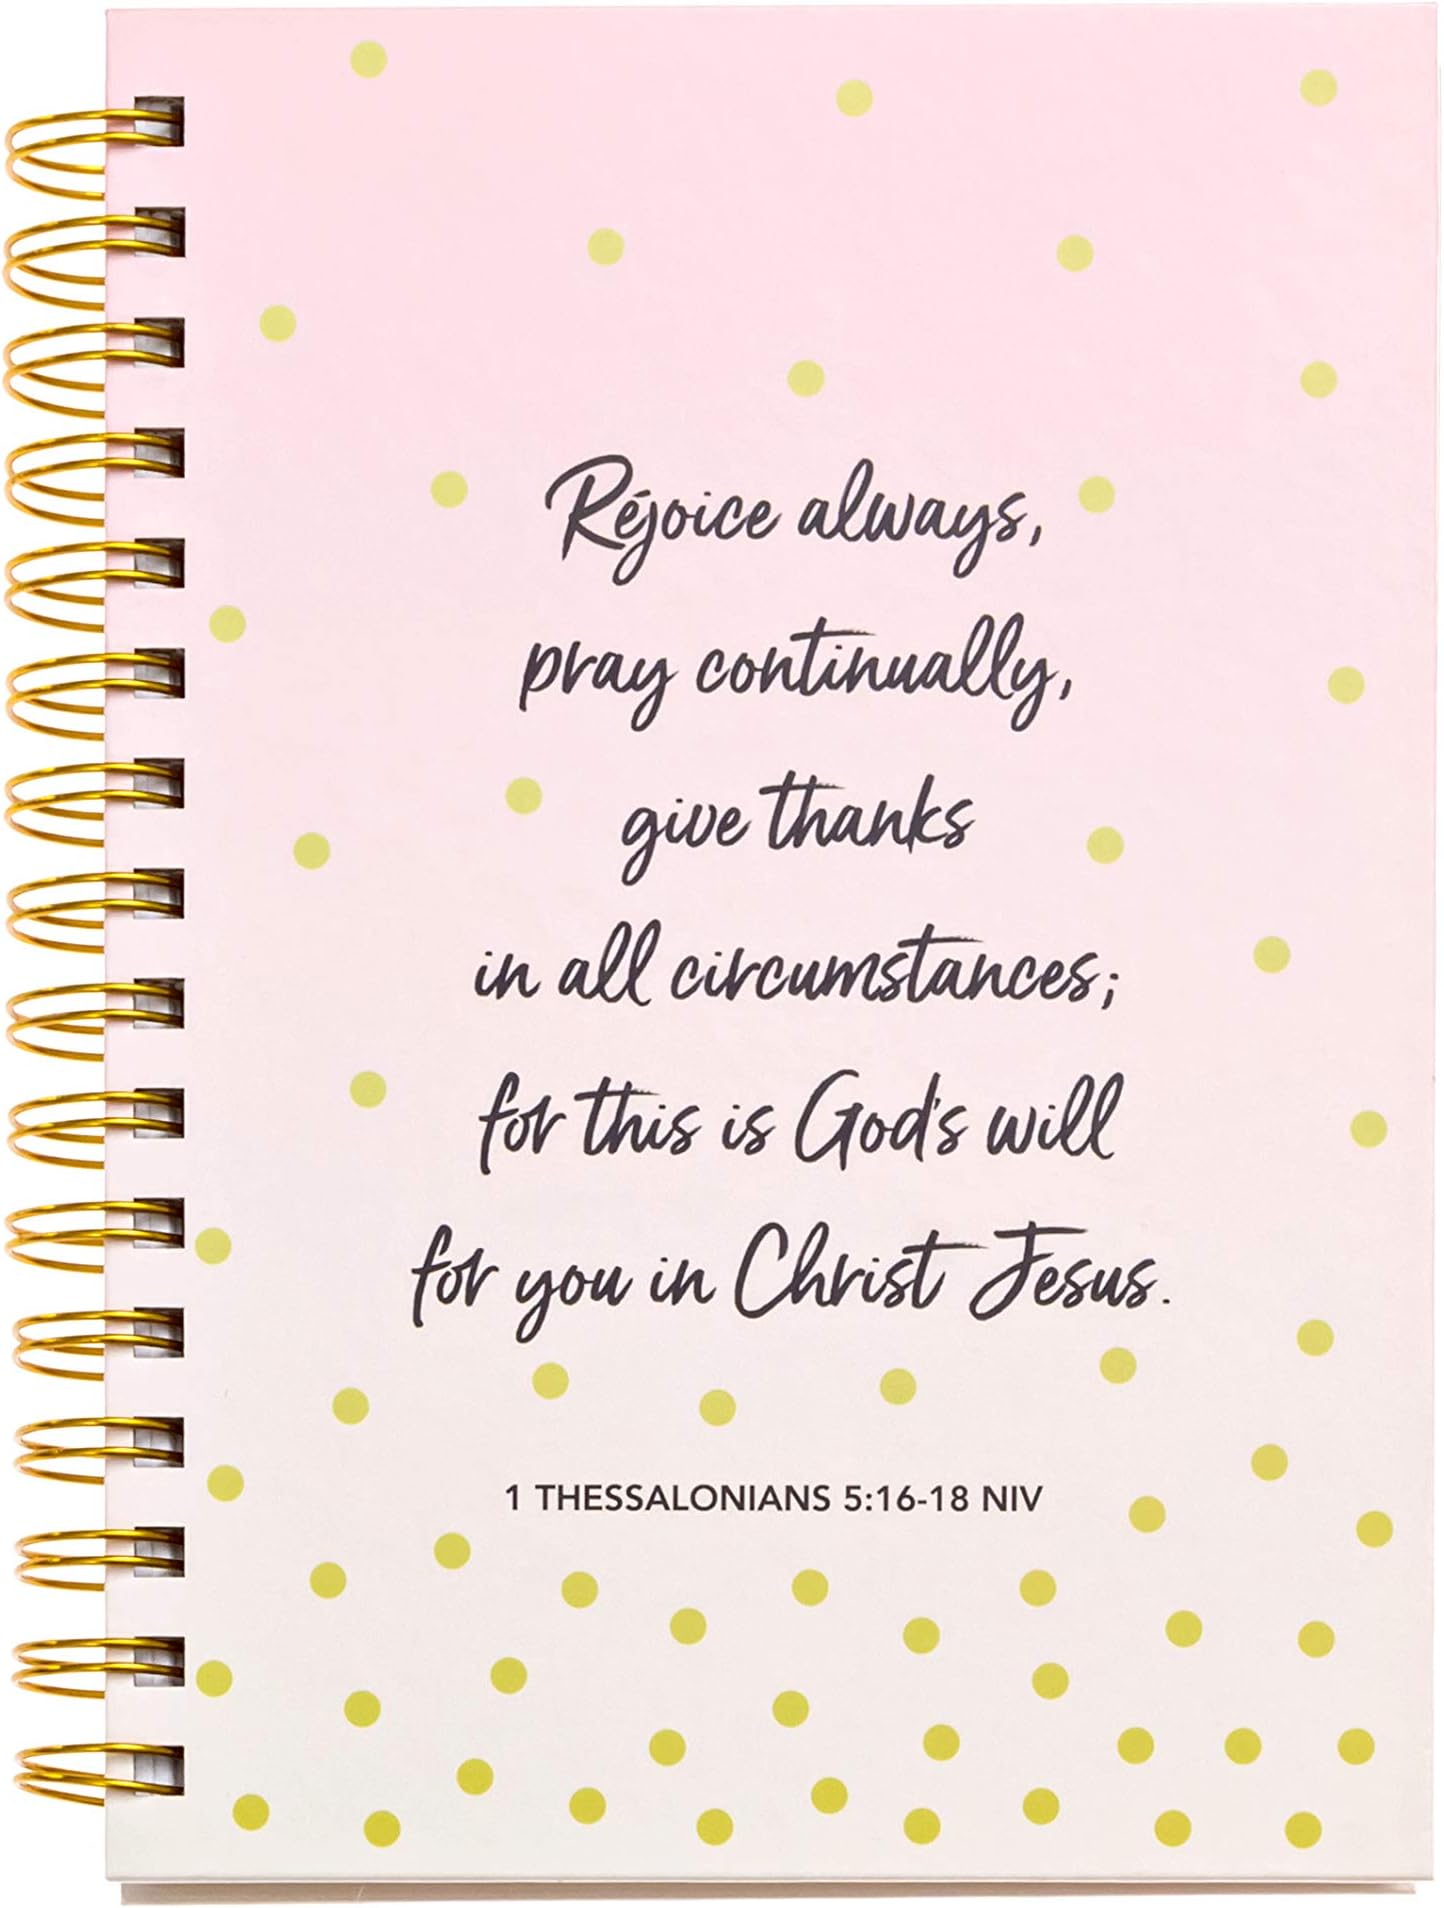 Rejoice always,
pray continually,
give thanks
in all circumstances;
for this is God's will
for you in Christ Jesus.
1 THESSALONIANS 5:16-18 NIV